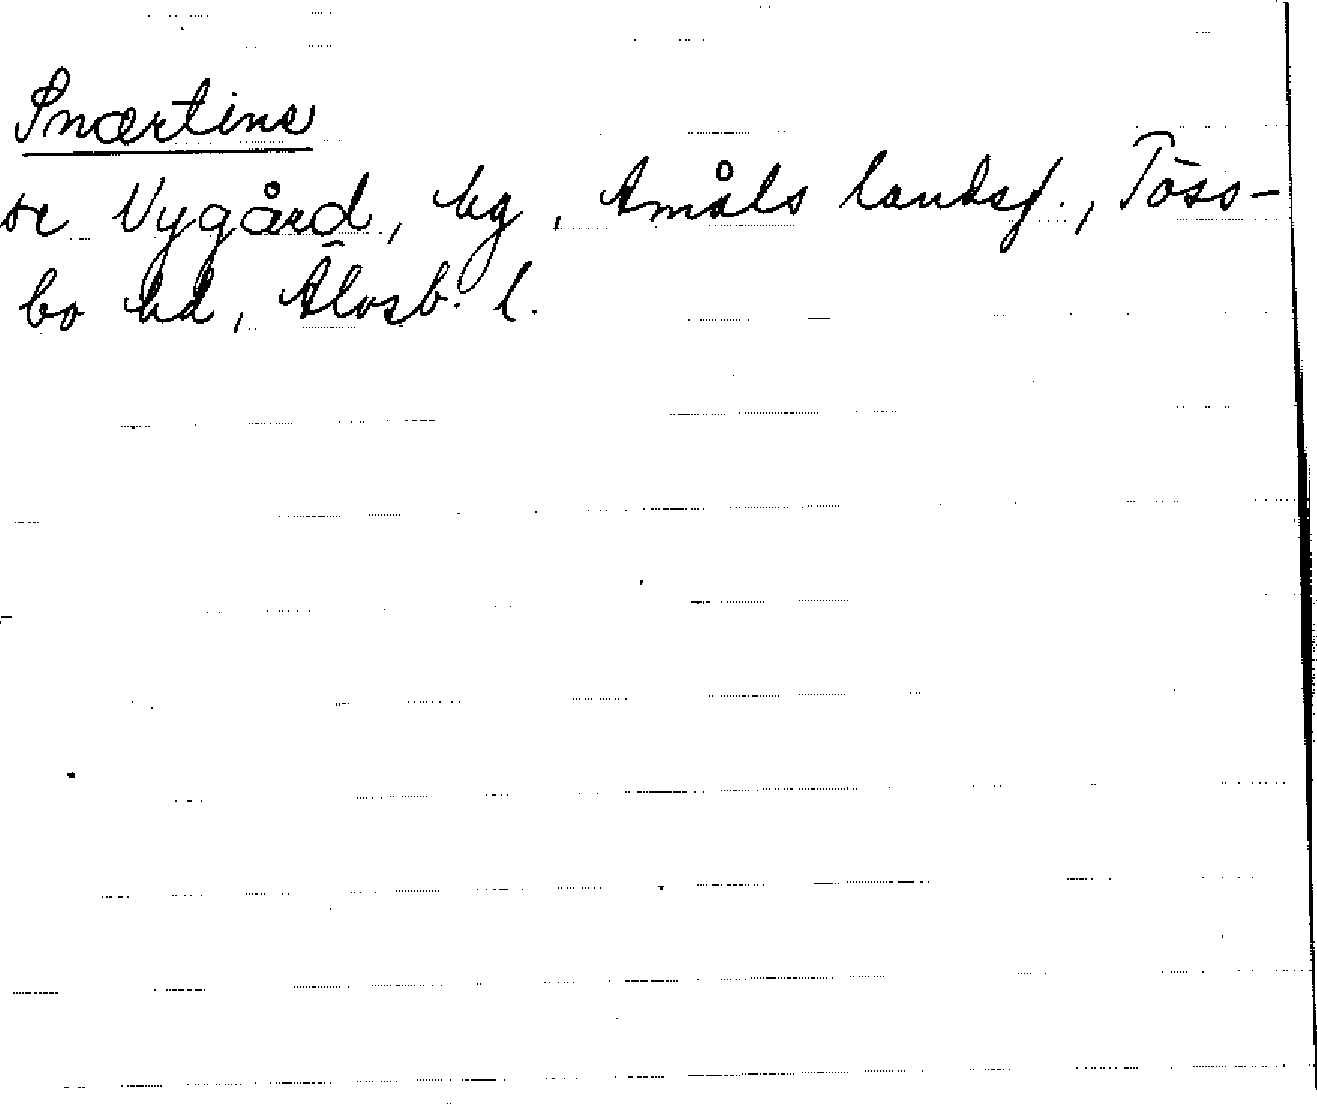 Snærtine
se Nygård, hg, Åmåls landsf., Töss-
bo hd, Älvsb. l.